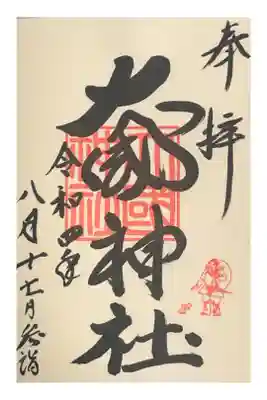 奉拝
大國神社
令和四年
八月十七日参詣